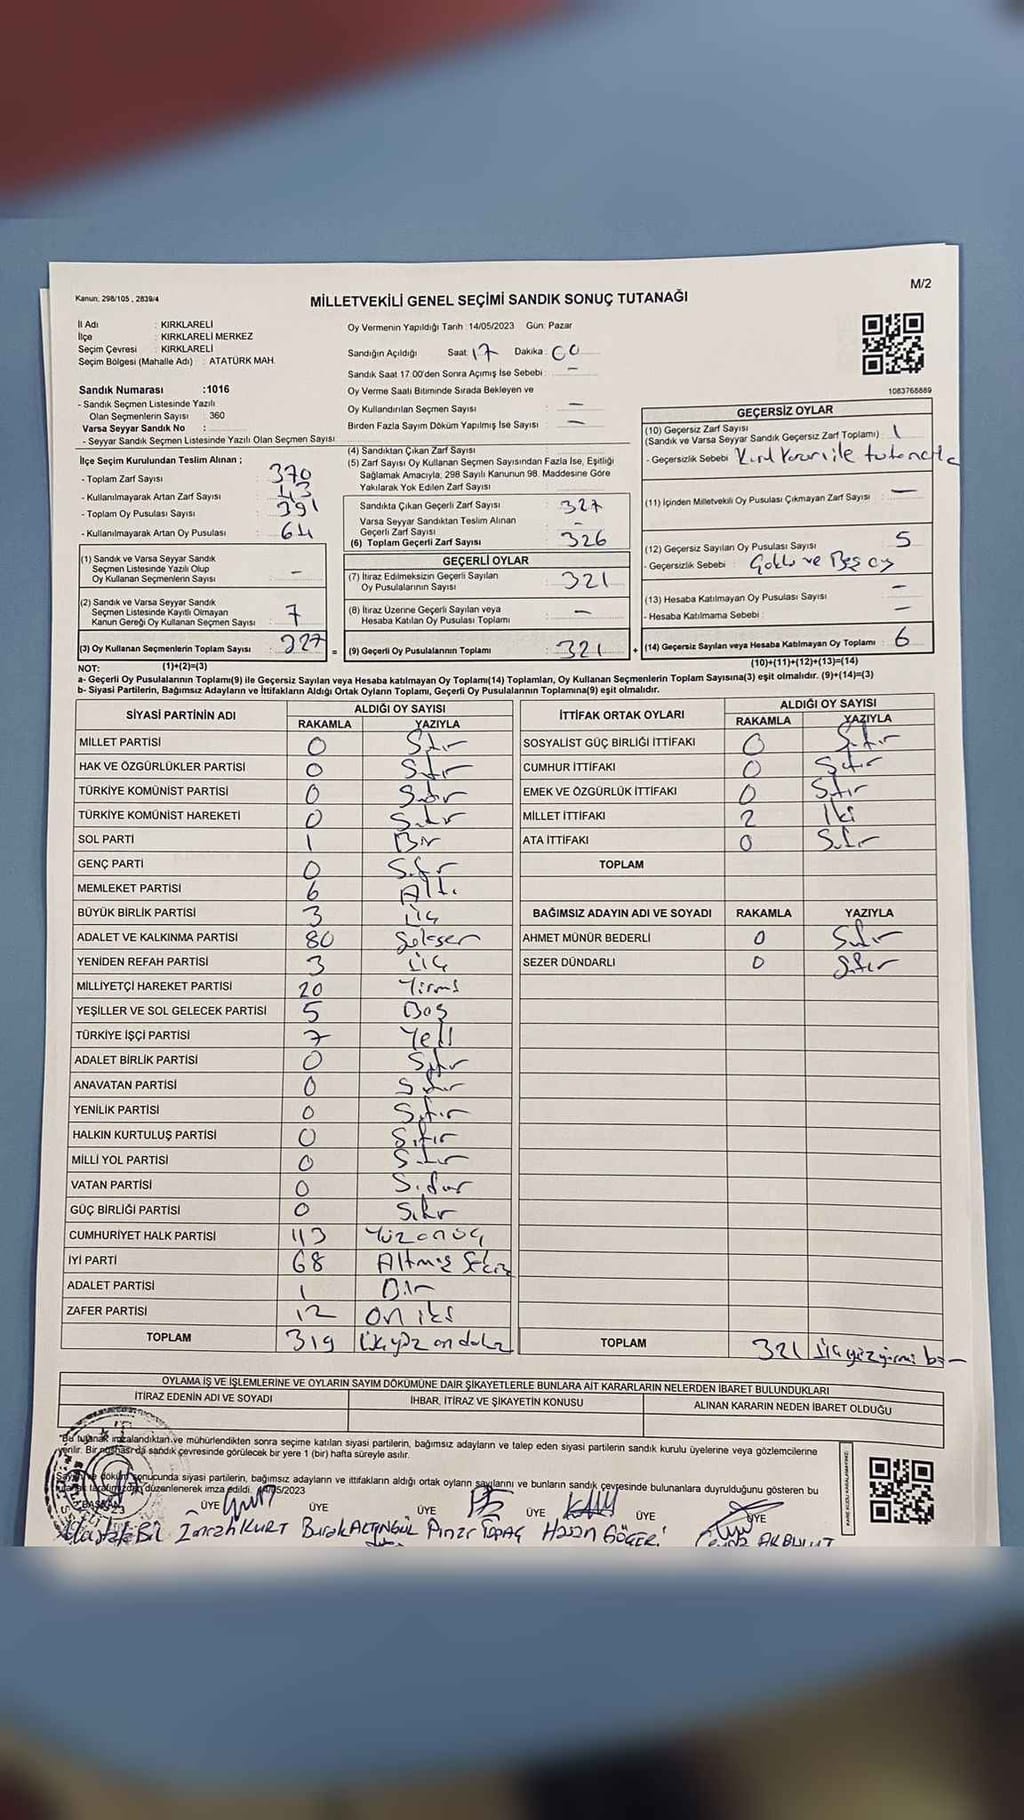 M/2
Kanun: 298/105 , 2839/4
MİLLETVEKİLİ GENEL SEÇİMİ SANDIK SONUÇ TUTANAĞI
İl Adı : KIRKLARELİ
İlçe : KIRKLARELİ MERKEZ
Seçim Çevresi : KIRKLARELİ
Seçim Bölgesi (Mahalle Adı) : ATATÜRK MAH.
Sandık Numarası :1016
- Sandık Seçmen Listesinde Yazılı
Olan Seçmenlerin Sayısı : 360
Varsa Seyyar Sandık No :
- Seyyar Sandık Seçmen Listesinde Yazılı Olan Seçmen Sayısı :
Oy Vermenin Yapıldığı Tarih :14/05/2023 Gün: Pazar
Sandığın Açıldığı Saat: 17 Dakika: 00
Sandık Saat 17.00'den Sonra Açımış İse Sebebi : -
Oy Verme Saati Bitiminde Sırada Bekleyen ve
Oy Kullandırılan Seçmen Sayısı : -
Birden Fazla Sayım Döküm Yapılmış İse Sayısı : -
1083768889
İlçe Seçim Kurulundan Teslim Alınan ;
- Toplam Zarf Sayısı : 370
- Kullanılmayarak Artan Zarf Sayısı : 43
- Toplam Oy Pusulası Sayısı : 391
- Kullanılmayarak Artan Oy Pusulası : 64
(1) Sandık ve Varsa Seyyar Sandık
Seçmen Listesinde Yazılı Olup
Oy Kullanan Seçmenlerin Sayısı : -
(2) Sandık ve Varsa Seyyar Sandık
Seçmen Listesinde Kayıtlı Olmayan
Kanun Gereği Oy Kullanan Seçmen Sayısı : 7
(3) Oy Kullanan Seçmenlerin Toplam Sayısı : 327
(4) Sandıktan Çıkan Zarf Sayısı :
(5) Zarf Sayısı Oy Kullanan Seçmen Sayısından Fazla İse, Eşitliği
Sağlamak Amacıyla, 298 Sayılı Kanunun 98. Maddesine Göre
Yakılarak Yok Edilen Zarf Sayısı :
Sandıkta Çıkan Geçerli Zarf Sayısı : 327
Varsa Seyyar Sandıktan Teslim Alınan
Geçerli Zarf Sayısı :
(6) Toplam Geçerli Zarf Sayısı : 326
GEÇERLİ OYLAR
(7) İtiraz Edilmeksizin Geçerli Sayılan
Oy Pusulalarının Sayısı : 321
(8) İtiraz Üzerine Geçerli Sayılan veya
Hesaba Katılan Oy Pusulası Toplamı : -
= (9) Geçerli Oy Pusulalarının Toplamı : 321
GEÇERSİZ OYLAR
(10) Geçersiz Zarf Sayısı
(Sandık ve Varsa Seyyar Sandık Geçersiz Zarf Toplamı) : 1
- Geçersizlik Sebebi : Kurul Kararı ile tutanakla
(11) İçinden Milletvekili Oy Pusulası Çıkmayan Zarf Sayısı : -
(12) Geçersiz Sayılan Oy Pusulası Sayısı : 5
- Geçersizlik Sebebi : ve oy
(13) Hesaba Katılmayan Oy Pusulası Sayısı : -
- Hesaba Katılmama Sebebi : -
+ (14) Geçersiz Sayılan veya Hesaba Katılmayan Oy Toplamı : 6
NOT: (1)+(2)=(3) (10)+(11)+(12)+(13)=(14)
a- Geçerli Oy Pusulalarının Toplamı(9) ile Geçersiz Sayılan veya Hesaba katılmayan Oy Toplamı(14) Toplamları, Oy Kullanan Seçmenlerin Toplam Sayısına(3) eşit olmalıdır. (9)+(14)=(3)
b- Siyasi Partilerin, Bağımsız Adayların ve İttifakların Aldığı Ortak Oyların Toplamı, Geçerli Oy Pusulalarının Toplamına(9) eşit olmalıdır.
SİYASİ PARTİNİN ADI ALDIĞI OY SAYISI
RAKAMLA YAZIYLA
MİLLET PARTİSİ 0 Sıfır
HAK VE ÖZGÜRLÜKLER PARTİSİ 0 Sıfır
TÜRKİYE KOMÜNİST PARTİSİ 0 Sıfır
TÜRKİYE KOMÜNİST HAREKETİ 0 Sıfır
SOL PARTİ 1 Bir
GENÇ PARTİ 0 Sıfır
MEMLEKET PARTİSİ 6 Altı
BÜYÜK BİRLİK PARTİSİ 3 Üç
ADALET VE KALKINMA PARTİSİ 80 Seksen
YENİDEN REFAH PARTİSİ 3 Üç
MİLLİYETÇİ HAREKET PARTİSİ 20 Yirmi
YEŞİLLER VE SOL GELECEK PARTİSİ 5 Beş
TÜRKİYE İŞÇİ PARTİSİ 7 Yedi
ADALET BİRLİK PARTİSİ 0 Sıfır
ANAVATAN PARTİSİ 0 Sıfır
YENİLİK PARTİSİ 0 Sıfır
HALKIN KURTULUŞ PARTİSİ 0 Sıfır
MİLLİ YOL PARTİSİ 0 Sıfır
VATAN PARTİSİ 0 Sıfır
GÜÇ BİRLİĞİ PARTİSİ 0 Sıfır
CUMHURİYET HALK PARTİSİ 113 Yüzonüç
İYİ PARTİ 68 Altmış Sekiz
ADALET PARTİSİ 1 Bir
ZAFER PARTİSİ 12 On iki
TOPLAM 319 Üçyüz ondokuz
İTTİFAK ORTAK OYLARI ALDIĞI OY SAYISI
RAKAMLA YAZIYLA
SOSYALİST GÜÇ BİRLİĞİ İTTİFAKI 0 Sıfır
CUMHUR İTTİFAKI 0 Sıfır
EMEK VE ÖZGÜRLÜK İTTİFAKI 0 Sıfır
MİLLET İTTİFAKI 2 İki
ATA İTTİFAKI 0 Sıfır
TOPLAM
BAĞIMSIZ ADAYIN ADI VE SOYADI RAKAMLA YAZIYLA
AHMET MÜNÜR BEDERLİ 0 Sıfır
SEZER DÜNDARLI 0 Sıfır
TOPLAM 321 Üçyüzyirmi bir
OYLAMA İŞ VE İŞLEMLERİNE VE OYLARIN SAYIM DÖKÜMÜNE DAİR ŞİKAYETLERLE BUNLARA AİT KARARLARIN NELERDEN İBARET BULUNDUKLARI
İTİRAZ EDENİN ADI VE SOYADI İHBAR, İTİRAZ VE ŞİKAYETİN KONUSU ALINAN KARARIN NEDEN İBARET OLDUĞU
"Bu tutanak imzalandıktan ve mühürlendikten sonra seçime katılan siyasi partilerin, bağımsız adayların ve talep eden siyasi partilerin sandık kurulu üyelerine veya gözlemcilerine
verilir. Bir nüshası da sandık çevresinde görülecek bir yere 1 (bir) hafta süreyle asılır.
Sayım ve döküm sonucunda siyasi partilerin, bağımsız adayların ve ittifakların aldığı ortak oyların sayılarını ve bunların sandık çevresinde bulunanlara duyrulduğunu gösteren bu
tutanak tarafımızdan düzenlenerek imza edildi. 14/05/2023
BAŞKAN ÜYE ÜYE ÜYE ÜYE ÜYE ÜYE
Mustafa Bil İmrah KURT Burak ALTINGÜL Pınar TOPAÇ Hasan GÖÇER AKBULUT